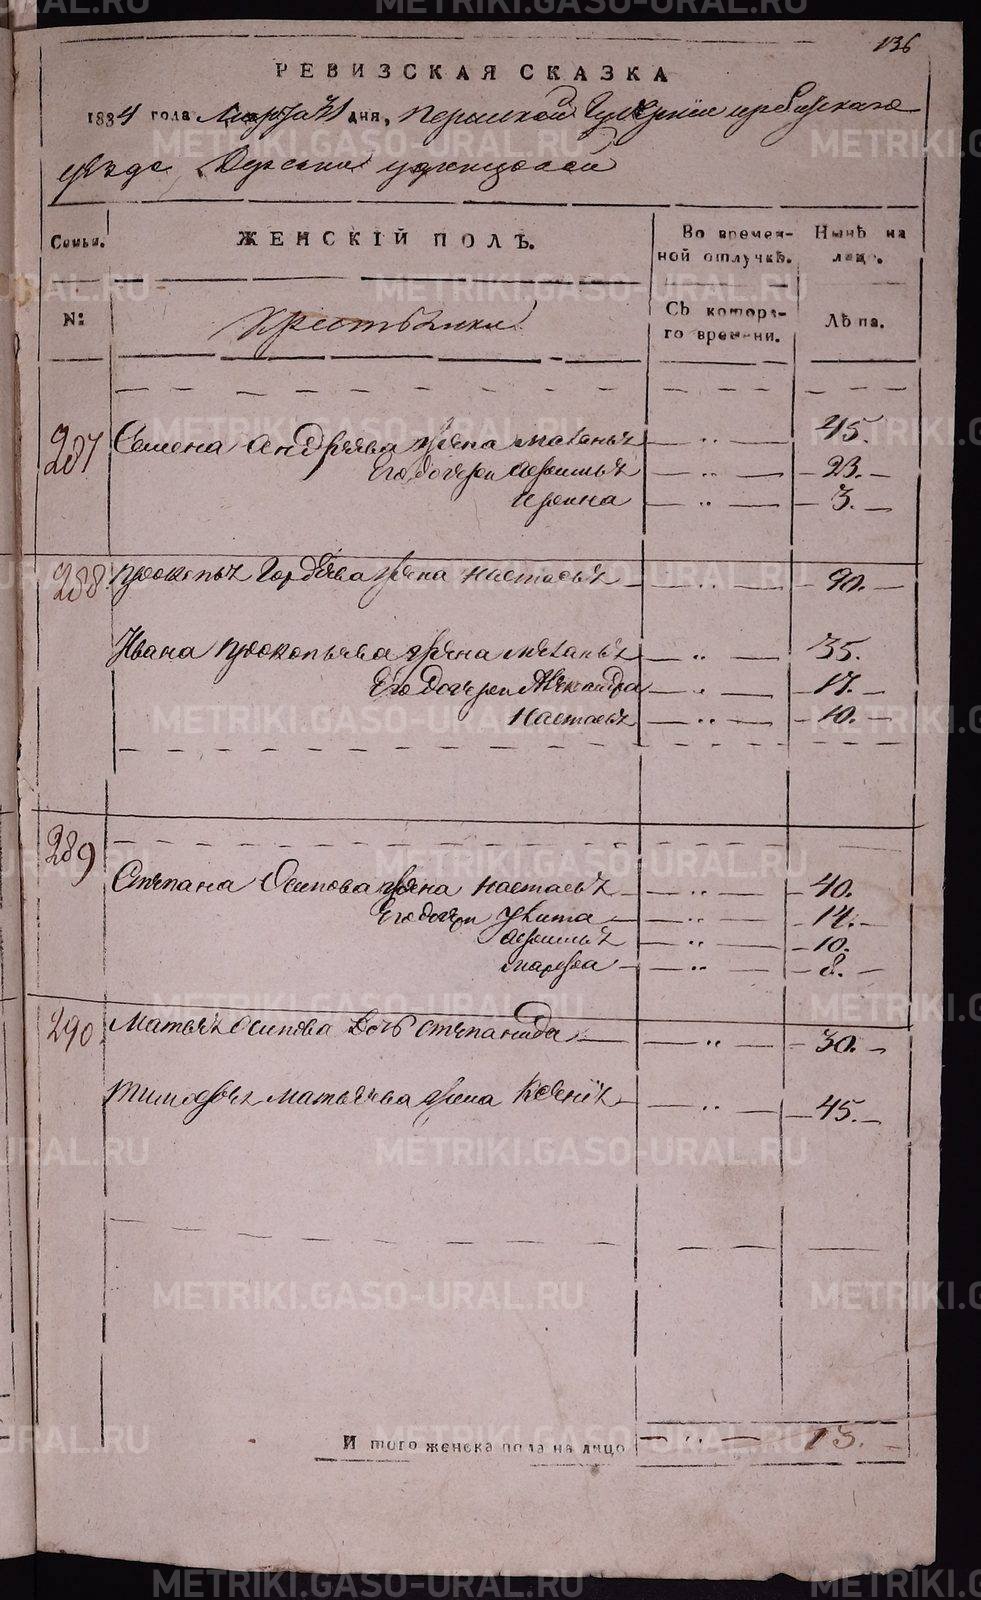 136
РЕВИЗСКАЯ СКАЗКА
1834 года Марта 31 дня, Пермской Губерніи ирбитскаго
уѣзда Деревни
Семьи. ЖЕНСКІЙ ПОЛЪ. Во времен- Нынѣ на
ной отлучкѣ. лице.
№: Крестьянки Съ котора- Лѣта.
го времени.
287 Семена Андреева жена маланья — „ — 45.
Его дочери афимья — „ — 23.
ирина — „ — 3.
288 прокопья Гордѣева жена настасья — „ — 90.
Ивана прокопьева жена меланья — „ — 35.
Его дочери Александра — „ — 17.
Настасья — „ — 10.
289
Степана Осипова жена настасья — „ — 40.
Его дочери Улита — „ — 14.
афимья — „ — 10.
марфа — „ — 8.
290. Матвея Осипова дочь степанида — „ — 30.
тимофея матвеева жена Ксенія — „ — 45.
И того женска пола на лицо — „ — 13.
METRIKI.GASO-URAL.RU